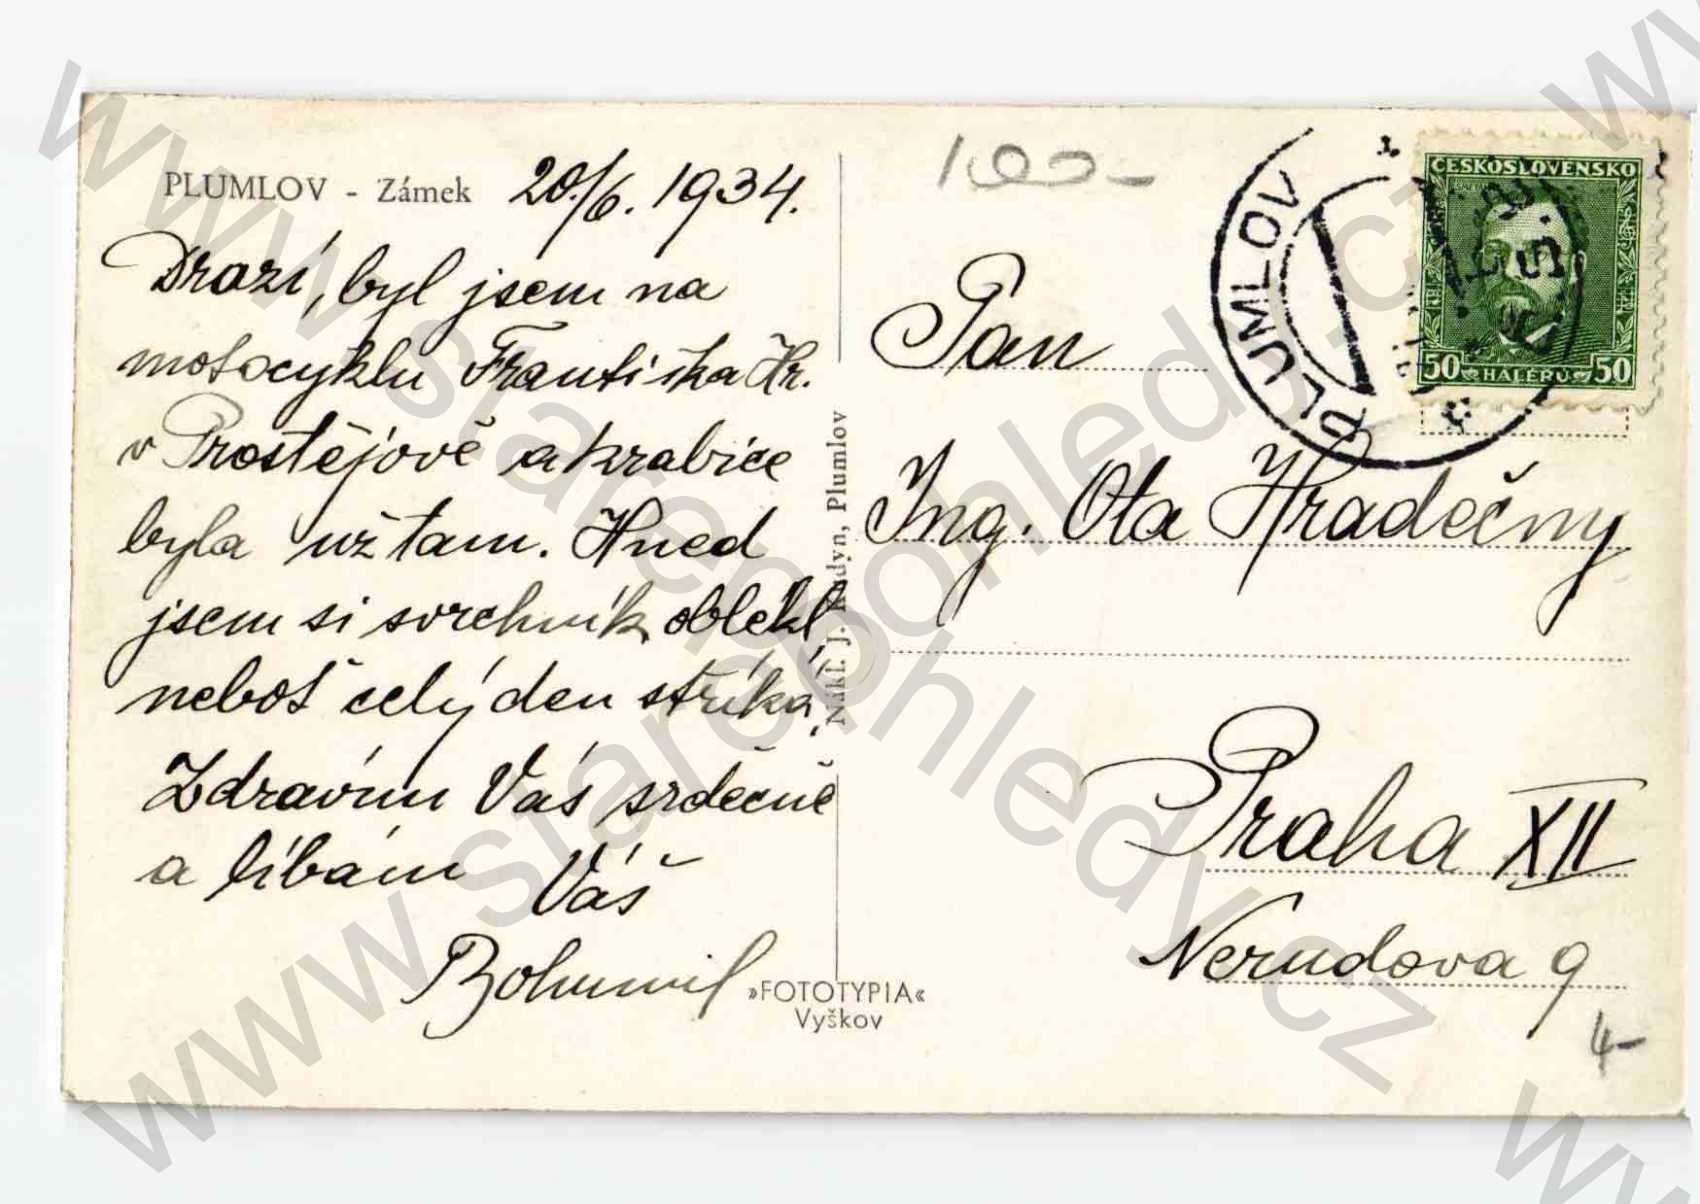 PLUMLOV - Zámek 20./6. 1934.
Drazí, byl jsem na
motocyklu Františka Hr.
v Prostějově a krabice
byla už tam. Hned
jsem si svrchník oblékl,
neboť celý den stříká.
Zdravím Vás srdečně
a líbám Váš
Bohumil
»FOTOTYPIA«
Vyškov
Nákl. J. , Plumlov
100-
PLUMLOV
PLUMLOV
ČESKOSLOVENSKO
50 HALÉŘŮ 50
Pan
Ing. Ota Hradečný
Praha XII
Nerudova 9
4-
www.starepohledy.cz
www.starepohledy.cz